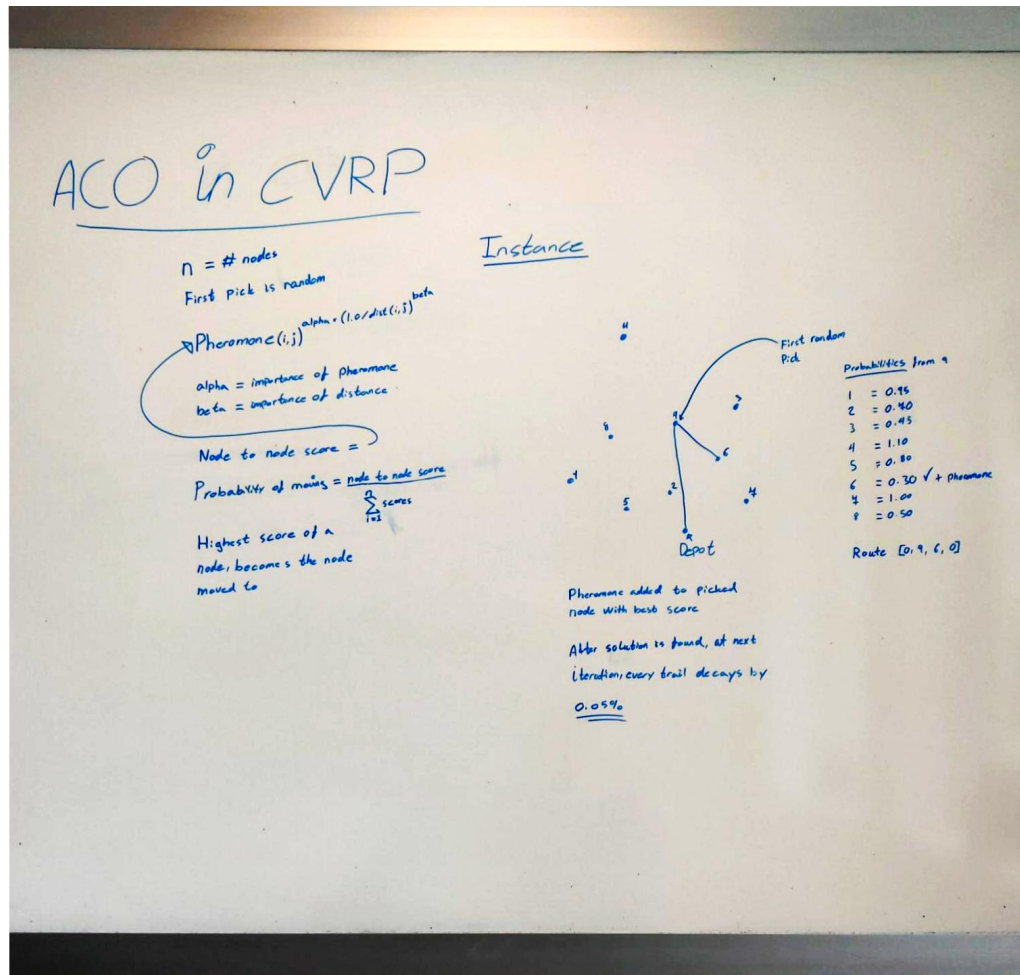 ACO in CVRP
n = # nodes
First pick is random
Pheromone(i,j)^alpha * (1.0/dist(i,j)^beta
alpha = importance of pheromone
beta = importance of distance
Node to node score =
Probability of moving = node to node score
n
∑ scores
i=1
Highest score of a
node, becomes the node
moved to
Instance
4
First random
Pick
3
9
8
6
1
2
7
5
Depot
Pheromone added to picked
node with best score
After solution is found, at next
iteration, every trail decays by
0.05%
Probabilities from 9
1 = 0.95
2 = 0.70
3 = 0.45
4 = 1.10
5 = 0.80
6 = 0.30 ✓ + pheromone
7 = 1.00
8 = 0.50
Route [0, 9, 6, 0]